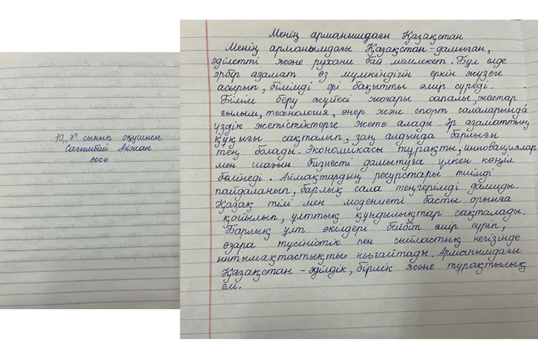 10 "Ә" сынып оқушысы
Сағынбай Айжан
эссе
Менің арманымдағы Қазақстан
Менің арманымдағы Қазақстан - дамыған,
әділетті және рухани бай мемлекет. Бұл елде
әрбір азамат өз мүмкіндігін еркін жүзеге
асырып, білімді әрі бақытты өмір сүреді.
Білім беру жүйесі жоғары сапалы, жастар
ғылым, технология, өнер және спорт салаларында
үздік жетістіктерге жете алады. Әр азаматтың
құқығы сақталып, заң алдында барлығы
тең болады. Экономикасы тұрақты, инновациялар
мен шағын бизнесті дамытуға үлкен көңіл
бөлінеді. Аймақтардың ресурстары тиімді
пайдаланып, барлық сала теңгерімді дамиды.
Қазақ тілі мен мәдениеті басты орынға
қойылып, ұлттық құндылықтар сақталады.
Барлық ұлт өкілдері бейбіт өмір сүріп,
өзара түсіністік пен сыйластық негізінде
ынтымақтастықты нығайтады. Арманымдағы
Қазақстан - әділдік, бірлік және тұрақтылық
елі.